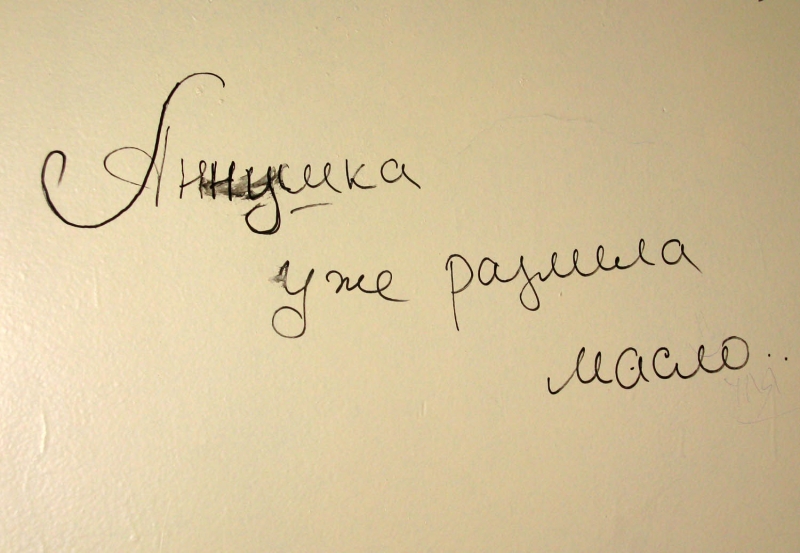 Аннушка
уже разлила
масло..